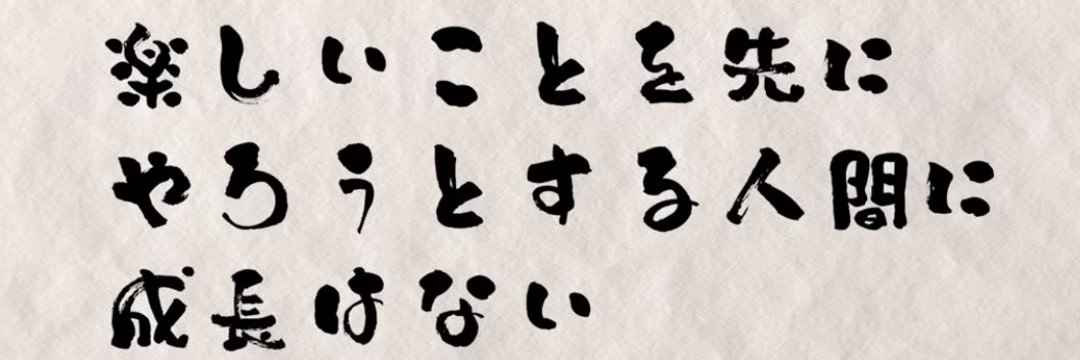 楽しいことを先に
やろうとする人間に
成長はない